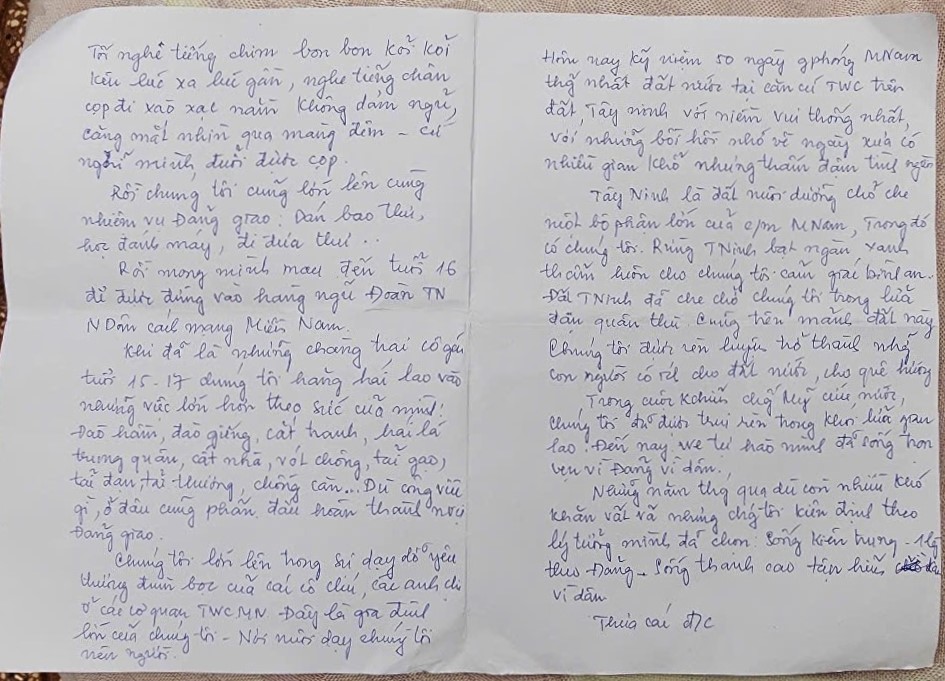 Tối nghe tiếng chim bon bon Kỏi Kỏi
Kêu lúc xa lúc gần, nghe tiếng chân
cọp đi xào xạc nằm Không dám ngủ,
căng mắt nhìn qua màng đêm - cứ
nghĩ mình đuổi được cọp.
Rồi chúng tôi cũng lớn lên cùng
nhiệm vụ Đảng giao: Dán bao thư,
học đánh máy, đi đưa thư ..
Rồi mong mình mau đến tuổi 16
để được đứng vào hàng ngũ Đoàn TN
N Dân cách mạng Miền Nam.
Khi đã là những chàng trai cô gái
tuổi 15-17 chúng tôi hăng hái lao vào
những việc lớn hơn theo sức của mình:
Đào hầm, đào giếng, cắt tranh, hái lá
trung quân, cất nhà, vót chông, tải gạo,
tải đạn, tải thương, chống càn... Dù công việc
gì, ở đâu cũng phấn đấu hoàn thành n.vụ
Đảng giao.
Chúng tôi lớn lên trong sự dạy dỗ yêu
thương đùm bọc của các cô chú, các anh chị
ở các cơ quan TWCMN. Đây là gia đình
lớn của chúng tôi - Nơi nuôi dạy chúng tôi
nên người.
Hôm nay kỷ niệm 50 ngày gphóng MNam
thg nhất đất nước tại căn cứ TWC trên
đất, Tây ninh với niềm vui thống nhất,
với những bồi hồi nhớ về ngày xưa có
nhiều gian khổ nhưng thấm đậm tình người
Tây Ninh là đất nuôi dưỡng chở che
một bộ phận lớn của c/m MNam, Trong đó
có chúng tôi. Rừng TNinh bạt ngàn xanh
thẳm luôn cho chúng tôi cảm giác bình an.
Đất TNinh đã che chở chúng tôi trong lửa
đạn quân thù. Cũng trên mảnh đất này
Chúng tôi được rèn luyện trở thành nhg
con người có ích cho đất nước, cho quê hương
Trong cuộc Kchiến chg Mỹ cứu nước,
chúng tôi đã được trui rèn trong khói lửa gian
lao. Đến nay tự hào mình đã sống trọn
vẹn vì Đảng vì dân.
Những năm thg qua dù còn nhiều khó
khăn vất vả nhưng chg tôi kiên định theo
lý tưởng mình đã chọn: Sống kiên trung - 1 lg
theo Đảng - Sống thanh cao tận hiếu
vì dân
Thưa các đ/c